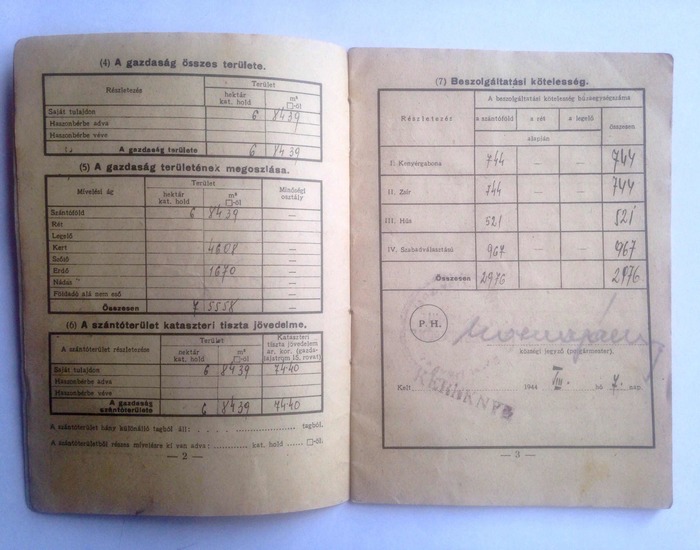 (4) A gazdaság összes területe.
Részletezés
Terület
hektár kat. hold
m² □-öl
Saját tulajdon 6 8439
Haszonbérbe adva
Haszonbérbe véve
A gazdaság területe 6 8439
(5) A gazdaság területének megoszlása.
Mivelési ág
Terület
Minőségi osztály
hektár kat. hold
m² □-öl
Szántóföld 6 8439 —
Rét —
Legelő —
Kert 4608 —
Szőlő —
Erdő 1670 —
Nádas —
Földadó alá nem eső —
Összesen 7 5558 —
(6) A szántóterület kataszteri tiszta jövedelme.
A szántóterület részletezése
Terület
hektár kat. hold
m² □-öl
Kataszteri tiszta jövedelem ar. kor.
Saját tulajdon 6 8439 7440
Haszonbérbe adva
Haszonbérbe véve
A gazdaság szántóterülete 6 8439 7440
A szántóterület hány különálló tagból áll: . . . tagból.
A szántóterületből részes mívelésre ki van adva: ............ kat. hold ...... □-öl.
— 2 —
(7) Beszolgáltatási kötelesség.
Részletezés
A beszolgáltatási kötelesség búzaegységszáma
a szántóföld
a rét
a legelő
összesen
alapján
I. Kenyérgabona 744 — — 744
II. Zsír 744 — — 744
III. Hús 521 — — 521
IV. Szabadválasztású 967 — — 967
Összesen 2976 — — 2976
P. H.
községi jegyző (polgármester).
Kelt, 1944 VIII. hó 4. nap.
— 3 —